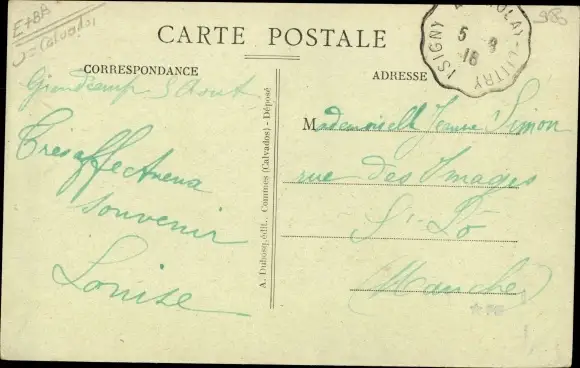 E+8A
(Calvados)
980
ISIGNY
LITTRY
5 8
18
CARTE POSTALE
CORRESPONDANCE
ADRESSE
Grandcamp 5 Aout
Tres affectueux
souvenir
Louise
A. Dubosq, édit., Commes (Calvados) - Déposé
Mademoiselle Jeanne Simon
rue des Images
St Lô
Manche